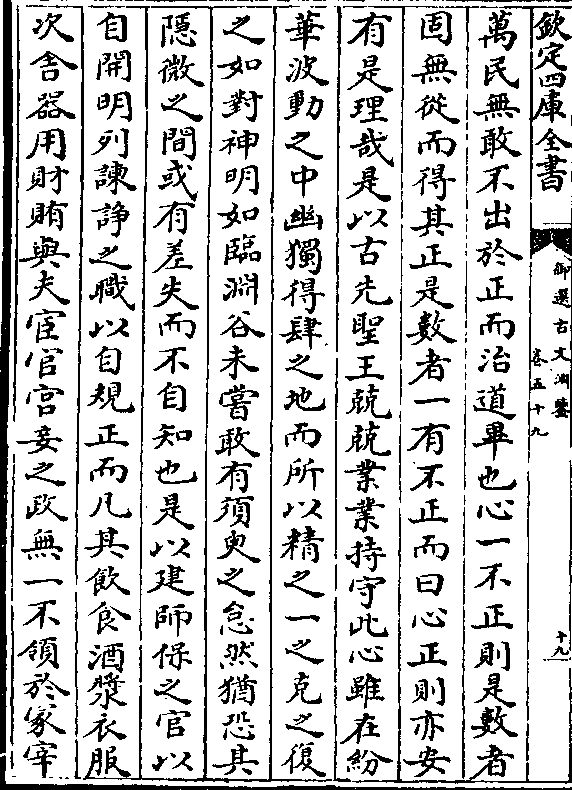 欽定四庫全書
御選古文淵鑒
卷五十九
十九
萬民無敢不出於正而治道畢也心一不正則是數者
固無從而得其正是數者一有不正而曰心正則亦安
有是理哉是以古先聖王兢兢業業持守此心雖在紛
華波動之中幽獨得肆之地而所以精之一之克之復
之如對神明如臨淵谷未嘗敢有須臾之怠然猶恐其
隱微之間或有差失而不自知也是以建師保之官以
自開明列諫諍之職以自規正而凡其飲食酒漿衣服
次舍器用財賄與夫宦官宮妾之政無一不領於冢宰